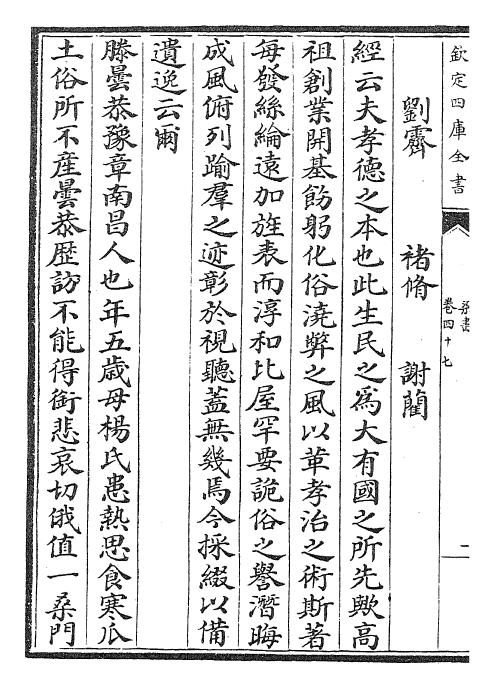 欽定四庫全書
梁書
卷四十七
二
劉霽　褚脩　謝藺
經云夫孝德之本也此生民之為大有國之所先歟高
祖創業開基飭躬化俗澆弊之風以革孝治之術斯著
每發絲綸遠加旌表而淳和比屋罕要詭俗之譽潛晦
成風俯列踰羣之迹彰於視聽蓋無幾焉今採綴以備
遺逸云爾
滕曇恭豫章南昌人也年五歳母楊氏患熱思食寒瓜
土俗所不産曇恭歴訪不能得銜悲哀切俄值一桑門